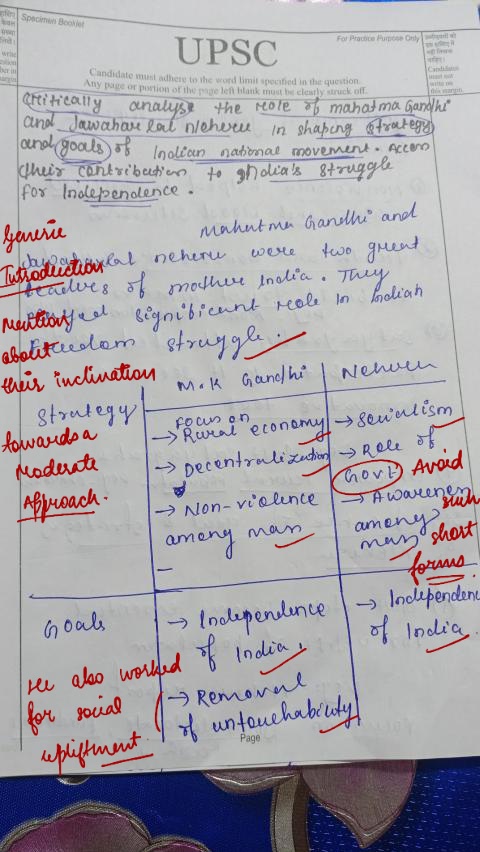 Specimen Booklet
For Practice Purpose Only
UPSC
Candidate must adhere to the word limit specified in the question.
Any page or portion of the page left blank must be clearly struck off.
Candidates
must not
write on
this margin.
Critically analyse the role of mahatma Gandhi
and Jawahar lal Nehru in shaping strategy
and goals of Indian national movement. Assess
their contribution to India's struggle
for Independence.
Generic
Introduction
Mention
about
their inclination
towards a
Moderate
Approach.
Mahatma Gandhi and
Jawaharlal Nehru were two great
leaders of mother India. They
played significant role in Indian
Freedom struggle.
M.K Gandhi
Nehru
Strategy
Focus on
→ Rural economy
→ Decentralization
→ Non-violence
among mass
→ Socialism
→ Role of
Govt
→ Awareness
among
mass
Avoid
such
short
forms
Goals
→ Independence
of India
→ Removal
of untouchability
→ Independence
of India
He also worked
for social
upliftment.
Page